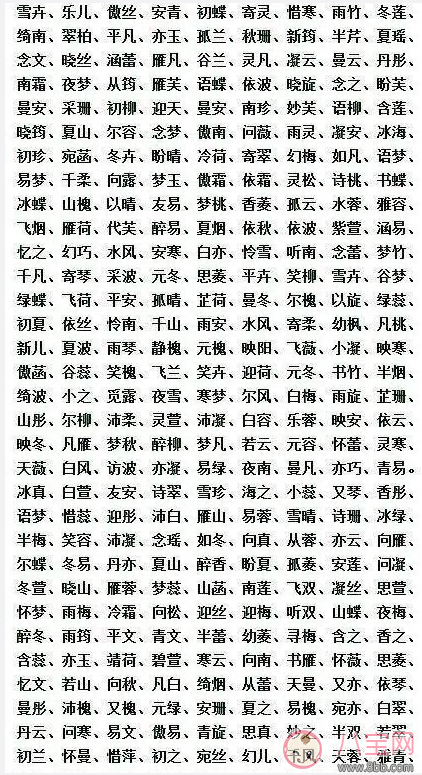 雪卉、乐儿、傲丝、安青、初蝶、寄灵、惜寒、雨竹、冬莲、
绮南、翠柏、平凡、亦玉、孤兰、秋珊、新筠、半芹、夏瑶、
念文、晓丝、涵蕾、雁凡、谷兰、灵凡、凝云、曼云、丹彤、
南霜、夜梦、从筠、雁芙、语蝶、依波、晓旋、念之、盼芙、
曼安、采珊、初柳、迎天、曼安、南珍、妙芙、语柳、含莲、
晓筠、夏山、尔容、念梦、傲南、问薇、雨灵、凝安、冰海、
初珍、宛菡、冬卉、盼晴、冷荷、寄翠、幻梅、如凡、语梦、
易梦、千柔、向露、梦玉、傲霜、依霜、灵松、诗桃、书蝶、
冰蝶、山槐、以晴、友易、梦桃、香菱、孤云、水蓉、雅容、
飞烟、雁荷、代芙、醉易、夏烟、依秋、依波、紫萱、涵易、
忆之、幻巧、水风、安寒、白亦、怜雪、听南、念蕾、梦竹、
千凡、寄琴、采波、元冬、思菱、平卉、笑柳、雪卉、谷梦、
绿蝶、飞荷、平安、孤晴、芷荷、曼冬、尔槐、以旋、绿蕊、
初夏、依丝、怜南、千山、雨安、水风、寄柔、幼枫、凡桃、
新儿、夏波、雨琴、静槐、元槐、映阳、飞薇、小凝、映寒、
傲菡、谷蕊、笑槐、飞兰、笑卉、迎荷、元冬、书竹、半烟、
绮波、小之、觅露、夜雪、寒梦、尔风、白梅、雨旋、芷珊、
山彤、尔柳、沛柔、灵萱、沛凝、白容、乐蓉、映安、依云、
映冬、凡雁、梦秋、醉柳、梦凡、若云、元容、怀蕾、灵寒、
天薇、白风、访波、亦凝、易绿、夜南、曼凡、亦巧、青易。
冰真、白萱、友安、诗翠、雪珍、海之、小蕊、又琴、香彤、
语梦、惜蕊、迎彤、沛白、雁山、易蓉、雪晴、诗珊、冰绿、
半梅、笑容、沛凝、念瑶、如冬、向真、从蓉、亦云、向雁、
尔蝶、冬易、丹亦、夏山、醉香、盼夏、孤菱、安莲、问凝、
冬萱、晓山、雁蓉、梦蕊、山菡、南莲、飞双、凝丝、思萱、
怀梦、雨梅、冷霜、向松、迎丝、迎梅、听双、山蝶、夜梅、
醉冬、雨筠、平文、青文、半蕾、幼菱、寻梅、含之、香之、
含蕊、亦玉、靖荷、碧萱、寒云、向南、书雁、怀薇、思菱、
忆文、若山、向秋、凡白、绮烟、从蕾、天曼、又亦、依琴、
曼彤、沛槐、又槐、元绿、安珊、夏之、易槐、宛亦、白翠、
丹云、问寒、易文、傲易、青旋、思真、妙之、半双、若翠、
初兰、怀曼、惜萍、初之、宛丝、幻儿、千风、天蓉、雅青、
八宝网
www.8bb.com